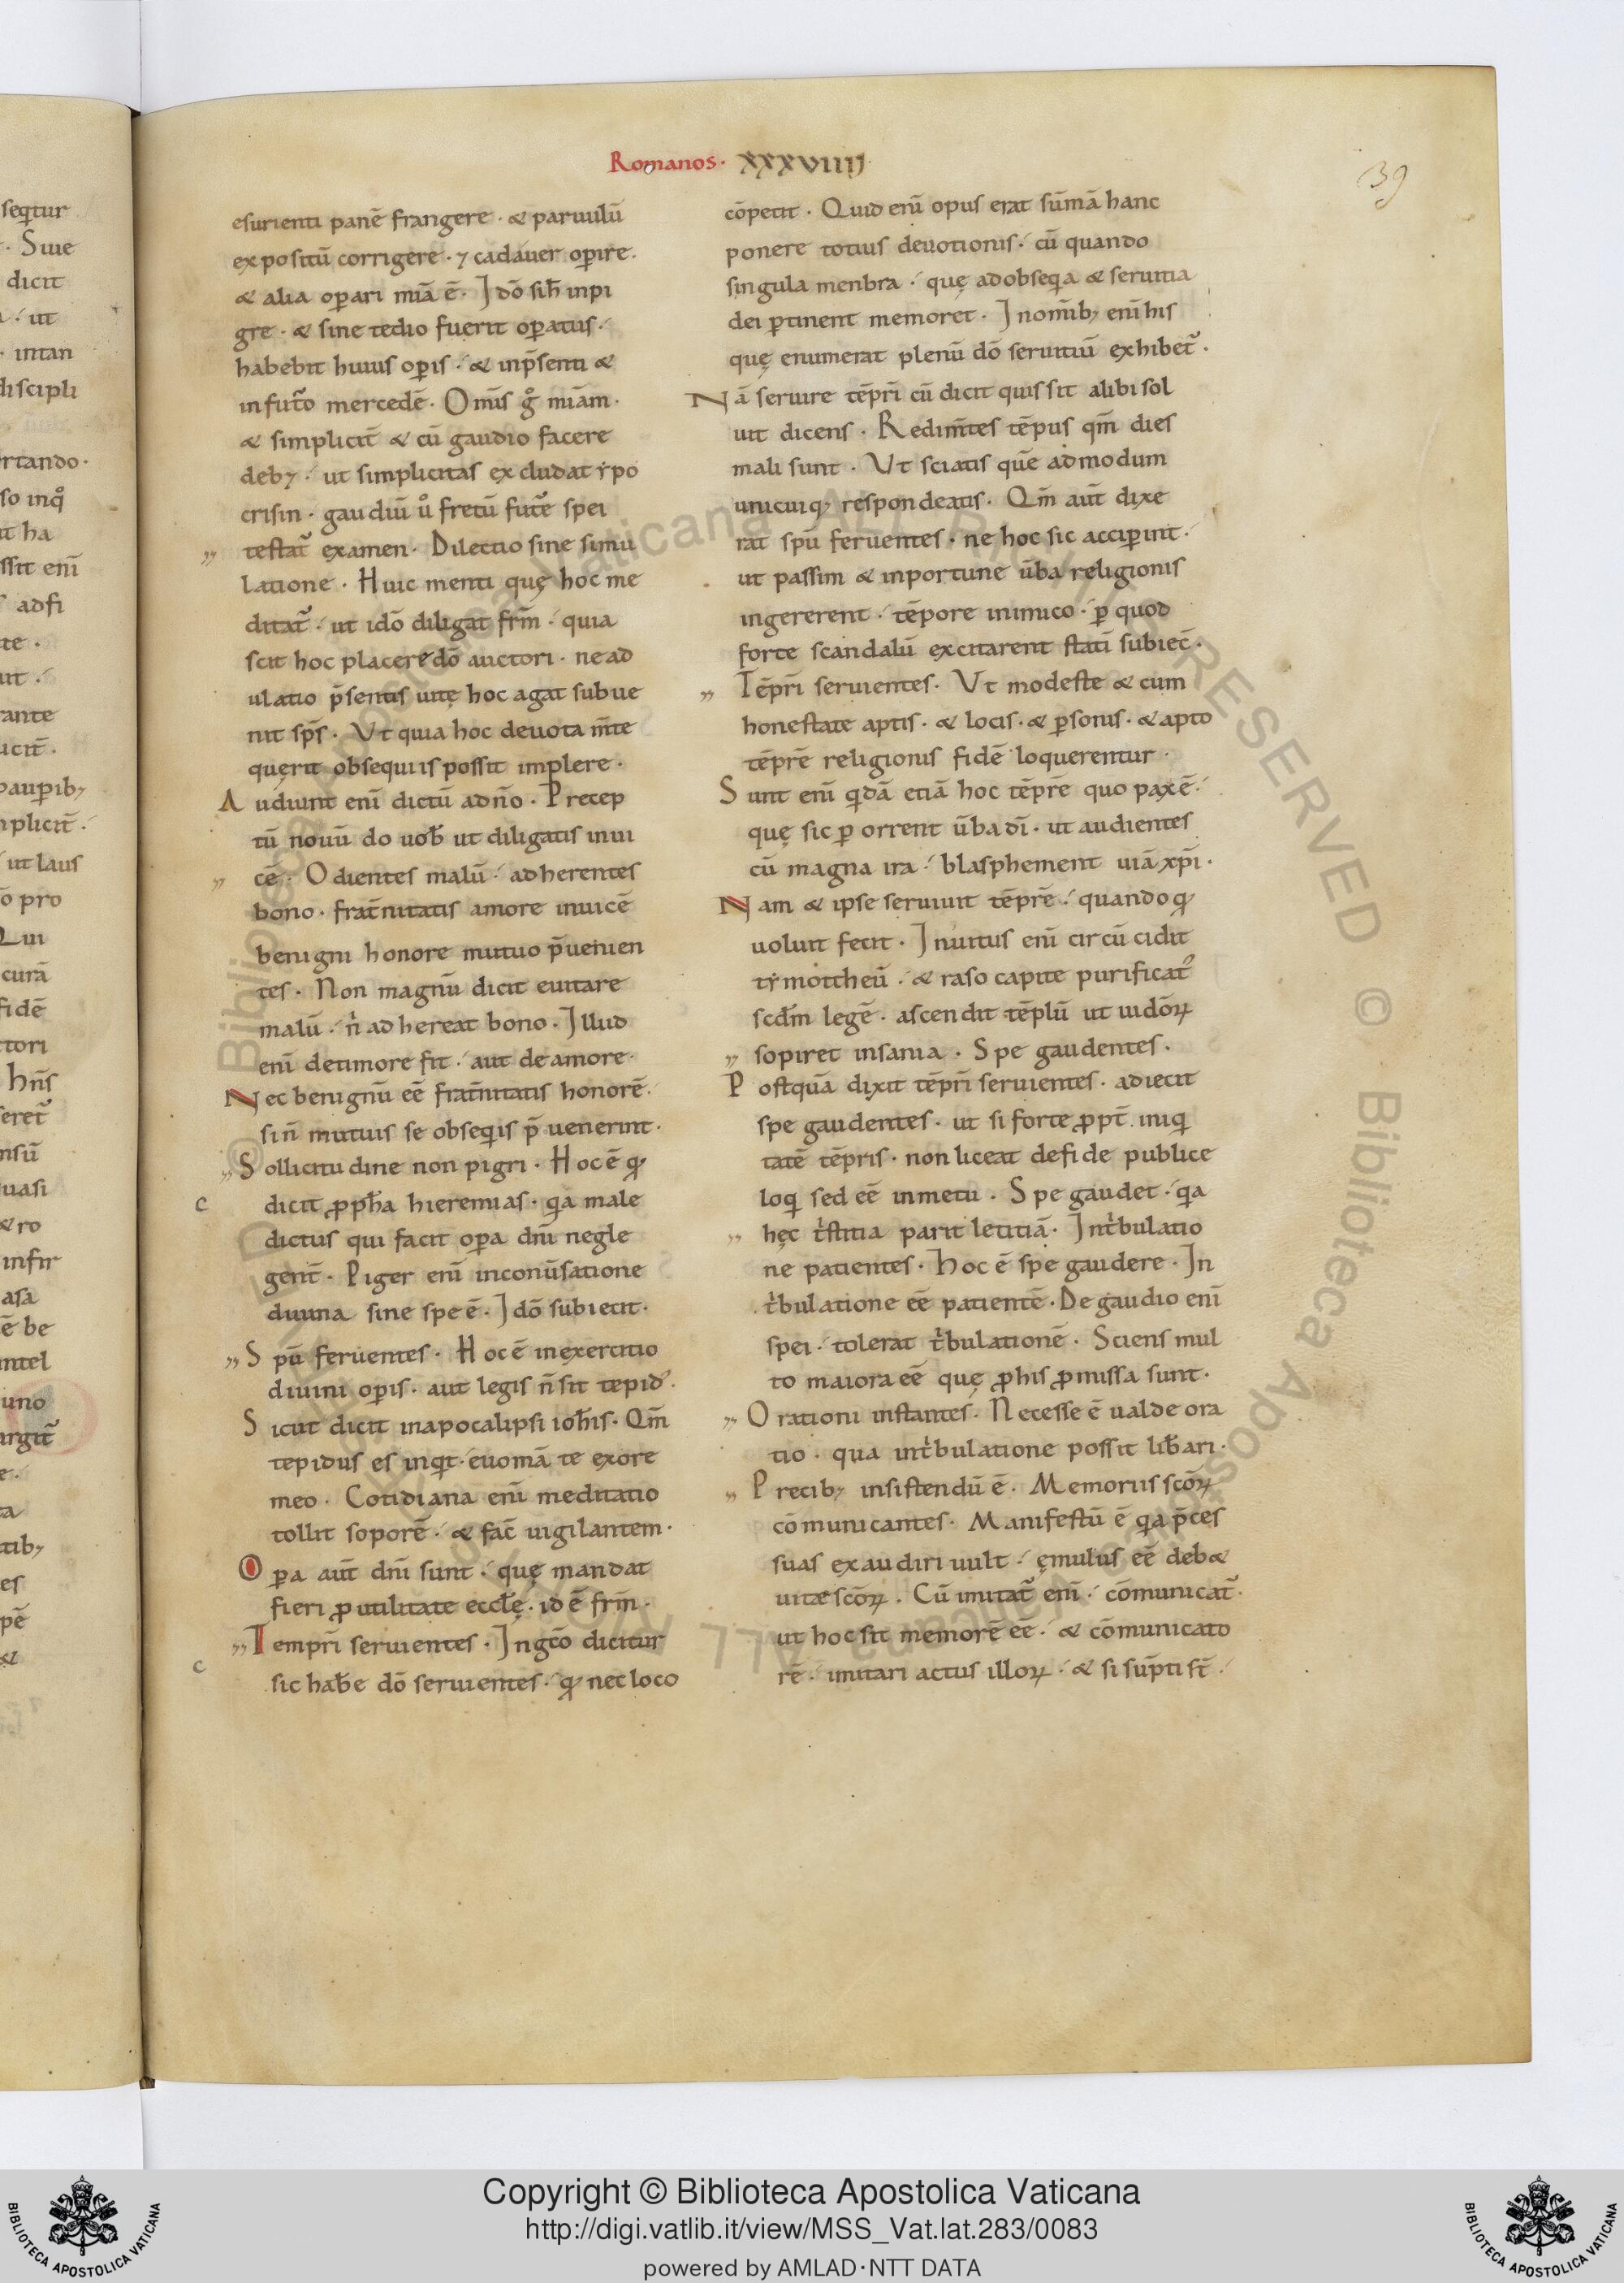 Romanos. XXXVIIII
39
esurienti panē frangere. & paruulū
expositū corrigere. ⁊ cadauer op̄ire.
& alia op̄ari miā ē. Idō si h̄ inpi
gre. & sine tedio fuerit op̄atus.
habebit huius op̄is. & inp̄senti &
infut̄o mercedē. Om̄s g̊ miam.
& simplicit̄ & cū gaudio facere
deb⁊. ut simplicitas excludat ẏpo
crisin. gaudiū ů fretū fut̄e spei
testat᷑ examen. Dilectio sine simu
latione. Huic menti quę hoc me
ditat᷑. ut idō diligat fr̄m. quia
scit hoc placere dō auctori. ne ad
ulatio p̄sentis uitę hoc agat subue
nit sp̄s. Vt quia hoc deuota m̄te
quęrit obsequiis possit implere.
Audiunt eni dictū ad n̄o. Precep
tū nouū do uob̄ ut diligatis inui
cē. Odientes malū. adherentes
bono. frat̄nitatis amore inuicē
benigni honore mutuo p̄uenien
tes. Non magnū dicit euitare
malū. n̓ adhereat bono. Illud
eni de timore fit. aut de amore.
Nec benignū eē frat̄nitatis honorē.
si n̄ mutuis se obseqis p̄uenerint.
Sollicitudine non pigri. Hoc ē qđ
dicit ꝓph̄a hieremias. qa male
dictus qui facit op̄a dn̄i negle
gent̄. Piger eni in conūsatione
diuina sine spe ē. Idō subiecit.
Spū feruentes. Hoc ē in exercitio
diuini op̄is. aut legis n̄ sit tepid᷒.
Sicut dicit in apocalipsi ioh̄is. Qm̄
tepidus es inqt. euomā te ex ore
meo. Cotidiana eni meditatio
tollit soporē. & fac̄ uigilantem.
Op̄a aut̄ dn̄i sunt. quę mandat
fieri ꝓ utilitate eccl̄ę. id ē fr̄m.
Tempr̄i seruientes. In gc̄o dicitur
sic hab̄e dō seruientes. qđ nec loco
cōpetit. Quid eni opus erat sūmā hanc
ponere totius deuotionis. cū quando
singula menbra. quę ad obseqa & seruitia
dei p̄tinent memoret. In om̄ib⁊ eni his
quę enumerat plenū dō seruitiū exhibet᷑.
Nā seruire tēpri cū dicit quis sit alibi sol
uit dicens. Redim̄tes tēpus qm̄ dies
mali sunt. Vt sciatis quē admodum
unicuiq⁊ respondeatis. Qm̄ aut̄ dixe
rat spū feruentes. ne hoc sic accip̄int.
ut passim & inportune ūba religionis
ingererent. tēpore inimico. p̄ quod
forte scandalū excitarent stati subiec̄.
Tēpr̄i seruientes. Vt modeste & cum
honestate aptis. & locis. & p̄sonis. & apto
tēpr̄e religionis fidē loquerentur.
Sunt eni qdā etiā hoc tēpr̄e quo pax ē.
quę sic p̄ orrent ūba dī. ut audientes
cū magna ira. blasphement uiā xp̄i.
Nam & ipse seruiuit tēpr̄e. quando qđ
uoluit fecit. Inuitus eni circūcidit
tẏmottheū. & raso capite purificat᷒
scd̄m legē. ascendit tēplū ut iudōꝝ
sopiret insania. Spe gaudentes.
Postquā dixit tēpr̄i seruientes. adiecit
spe gaudentes. ut si forte ꝓpt̄ iniq
tatē tēpris. non liceat de fide publice
loq sed eē in metu. Spe gaudet. qa
hęc t̓stitia parit letitiā. In t̓bulatio
ne patientes. Hoc ē spe gaudere. In
t̓bulatione eē patientē. De gaudio eni
spei. tolerat t̓bulationē. Sciens mul
to maiora eē quę ꝓ his ꝓmissa sunt.
Orationi instantes. Necesse ē ualde ora
tio. qua in t̓bulatione possit lib̄ari.
Precib⁊ insistendū ē. Memoriis scōꝝ
cōmunicantes. Manifestū ē qa p̄ces
suas exaudiri uult. ęmulus eē deb&
uitæ scōꝝ. Cū imitat᷑ eni. cōmunicat᷑.
ut hoc sit memorē eē. & cōmunicato
rē. imitari actus illoꝝ. & si sūpti st̄.
seqtur
. Siue
dicit
. ut
intan
discipli
rtando.
so inq̊
t ha
ssit eni
adfi
te.
rante
auperib⁊
ut laus
pro
Qui
curā
fidē
ttori
hn̄s
eret᷑
nsū
uasi
& ro
infir
asa
ē be
intel
uno
urgit᷑
Copyright © Biblioteca Apostolica Vaticana
http://digi.vatlib.it/view/MSS_Vat.lat.283/0083
powered by AMLAD·NTT DATA
BIBLIOTECA APOSTOLICA VATICANA
BIBLIOTECA APOSTOLICA VATICANA